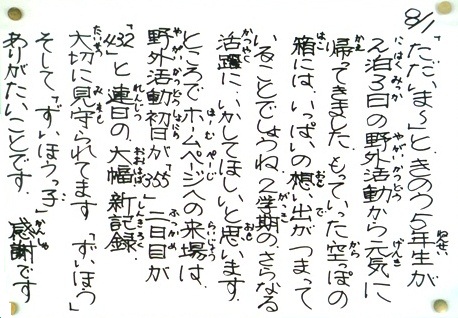 8/1
「ただいま～」と、きのう5年生が
2泊3日の野外活動から元気に
帰ってきました。もっていった空っぽの
箱には、いっぱいの想い出がつまって
いることでしょうね。2学期の、さらなる
活躍に、いかしてほしいと思います。
ところで、ホームページへの来場は、
野外活動初日が「355」二日目が
「432」と連日の、大幅新記録。
大切に見守られてます「ずいほう」
そして、「ずいほうっ子」
ありがたいことです。感謝です